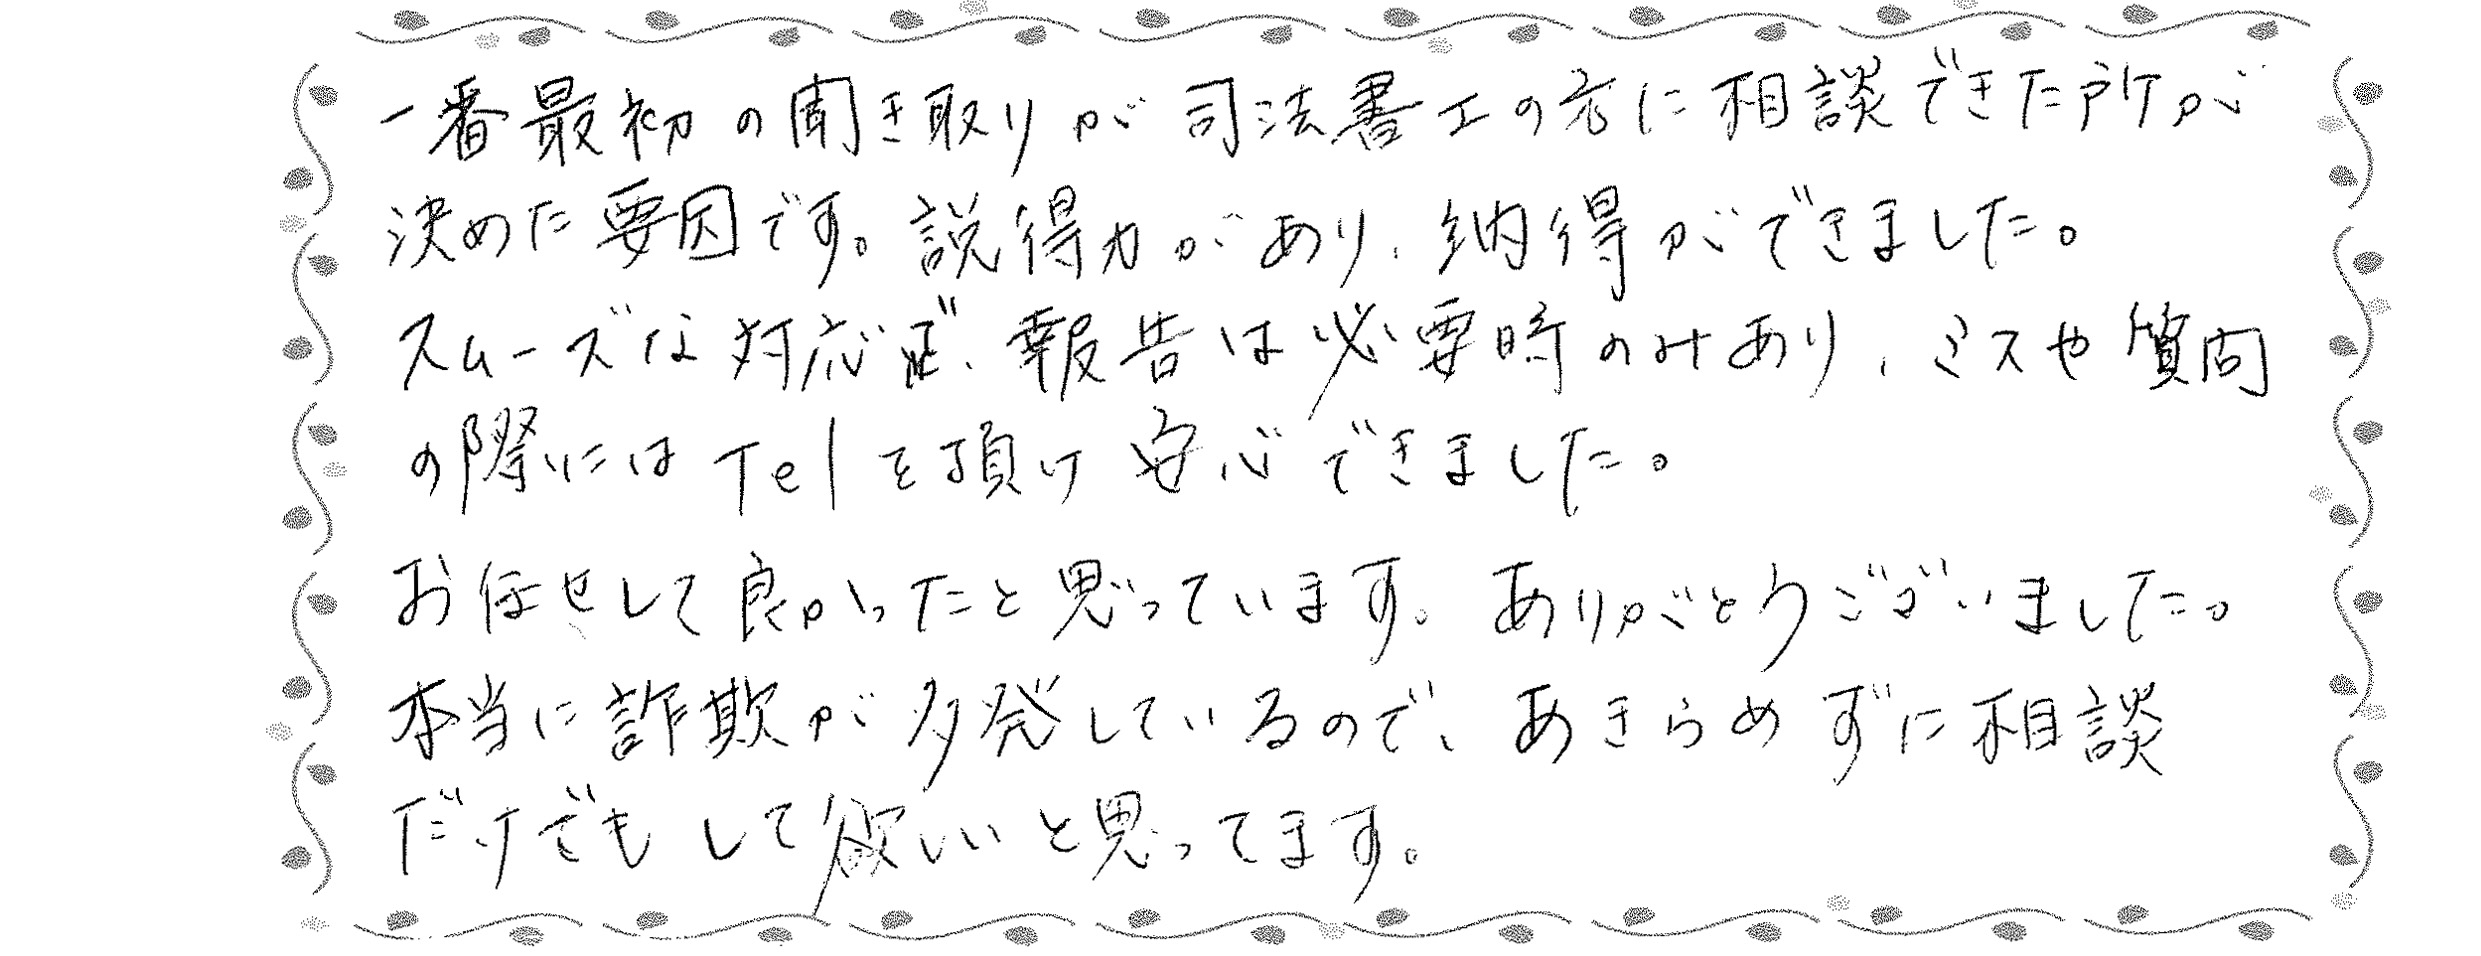 一番最初の聞き取りが司法書士の方に相談できた所が
決めた要因です。説得力があり、納得ができました。
スムーズな対応で、報告は必要時のみあり、ミスや質問
の際にはTelを頂け安心できました。
お任せして良かったと思っています。ありがとうございました。
本当に詐欺が多発しているので、あきらめずに相談
だけでもして欲しいと思ってます。